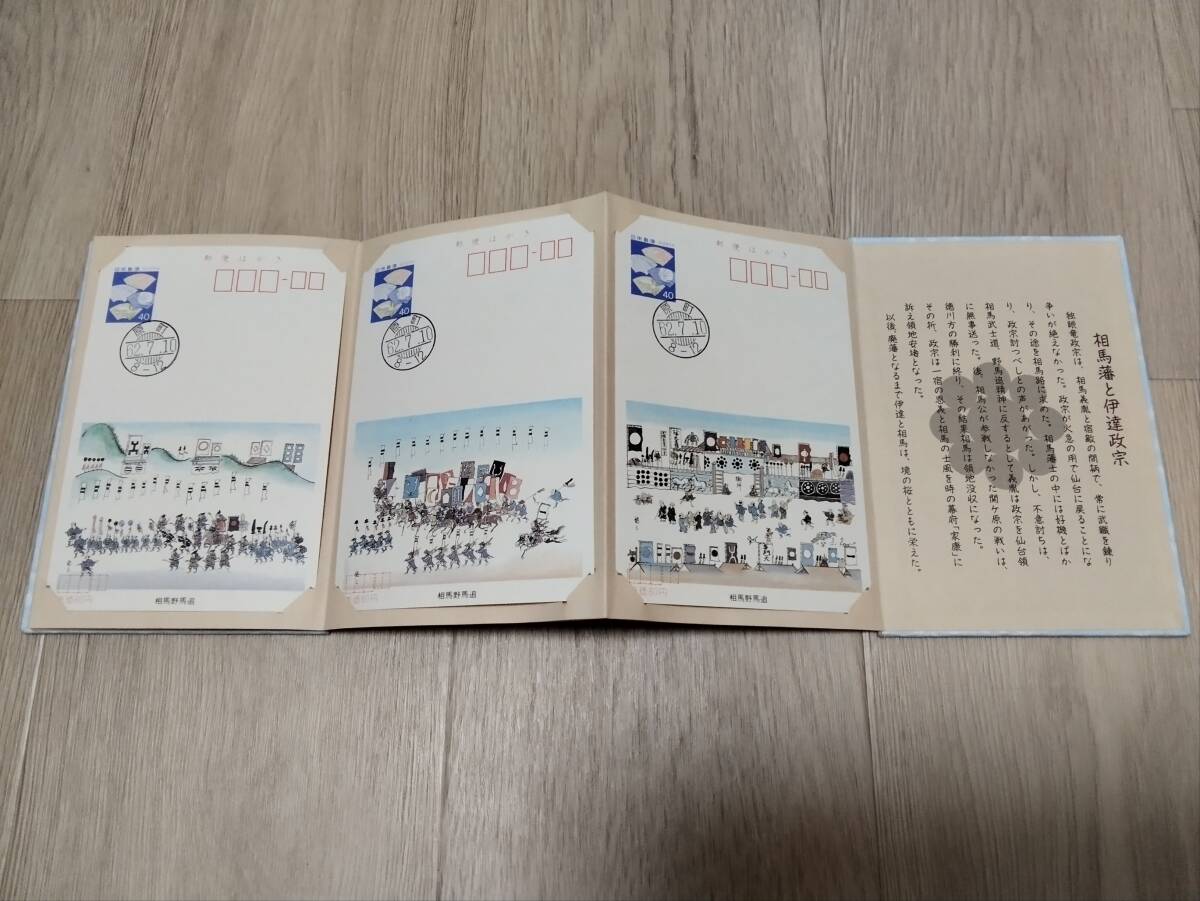 郵便はがき
日本郵便
40
原町
62.7.10
8-12
価60円
相馬野馬追
郵便はがき
日本郵便
40
原町
62.7.10
8-12
相馬野馬追
郵便はがき
日本郵便
40
原町
62.7.10
8-12
価60円
相馬野馬追
相馬藩と伊達政宗
独眼竜政宗は、相馬義胤と宿敵の間柄で、常に武職を競り
争いが絶えなかった。政宗が火急の用で仙台に戻ることにな
り、その途を相馬路に求めた。相馬藩士の中には好機とばか
り、政宗討つべしとの声があがった。しかし、不意討ちは、
相馬武士道、野馬追精神に反するとして義胤は政宗を仙台領
に無事送った。後、相馬公が参戦しなかった関ケ原の戦いは、
徳川方の勝利に終り、その結果相馬は領地没収になった。
その折、政宗は一宿の恩義と相馬の士風を時の幕府「家康」に
訴え領地安堵となった。
以後、廃藩となるまで伊達と相馬は、境の桜とともに栄えた。